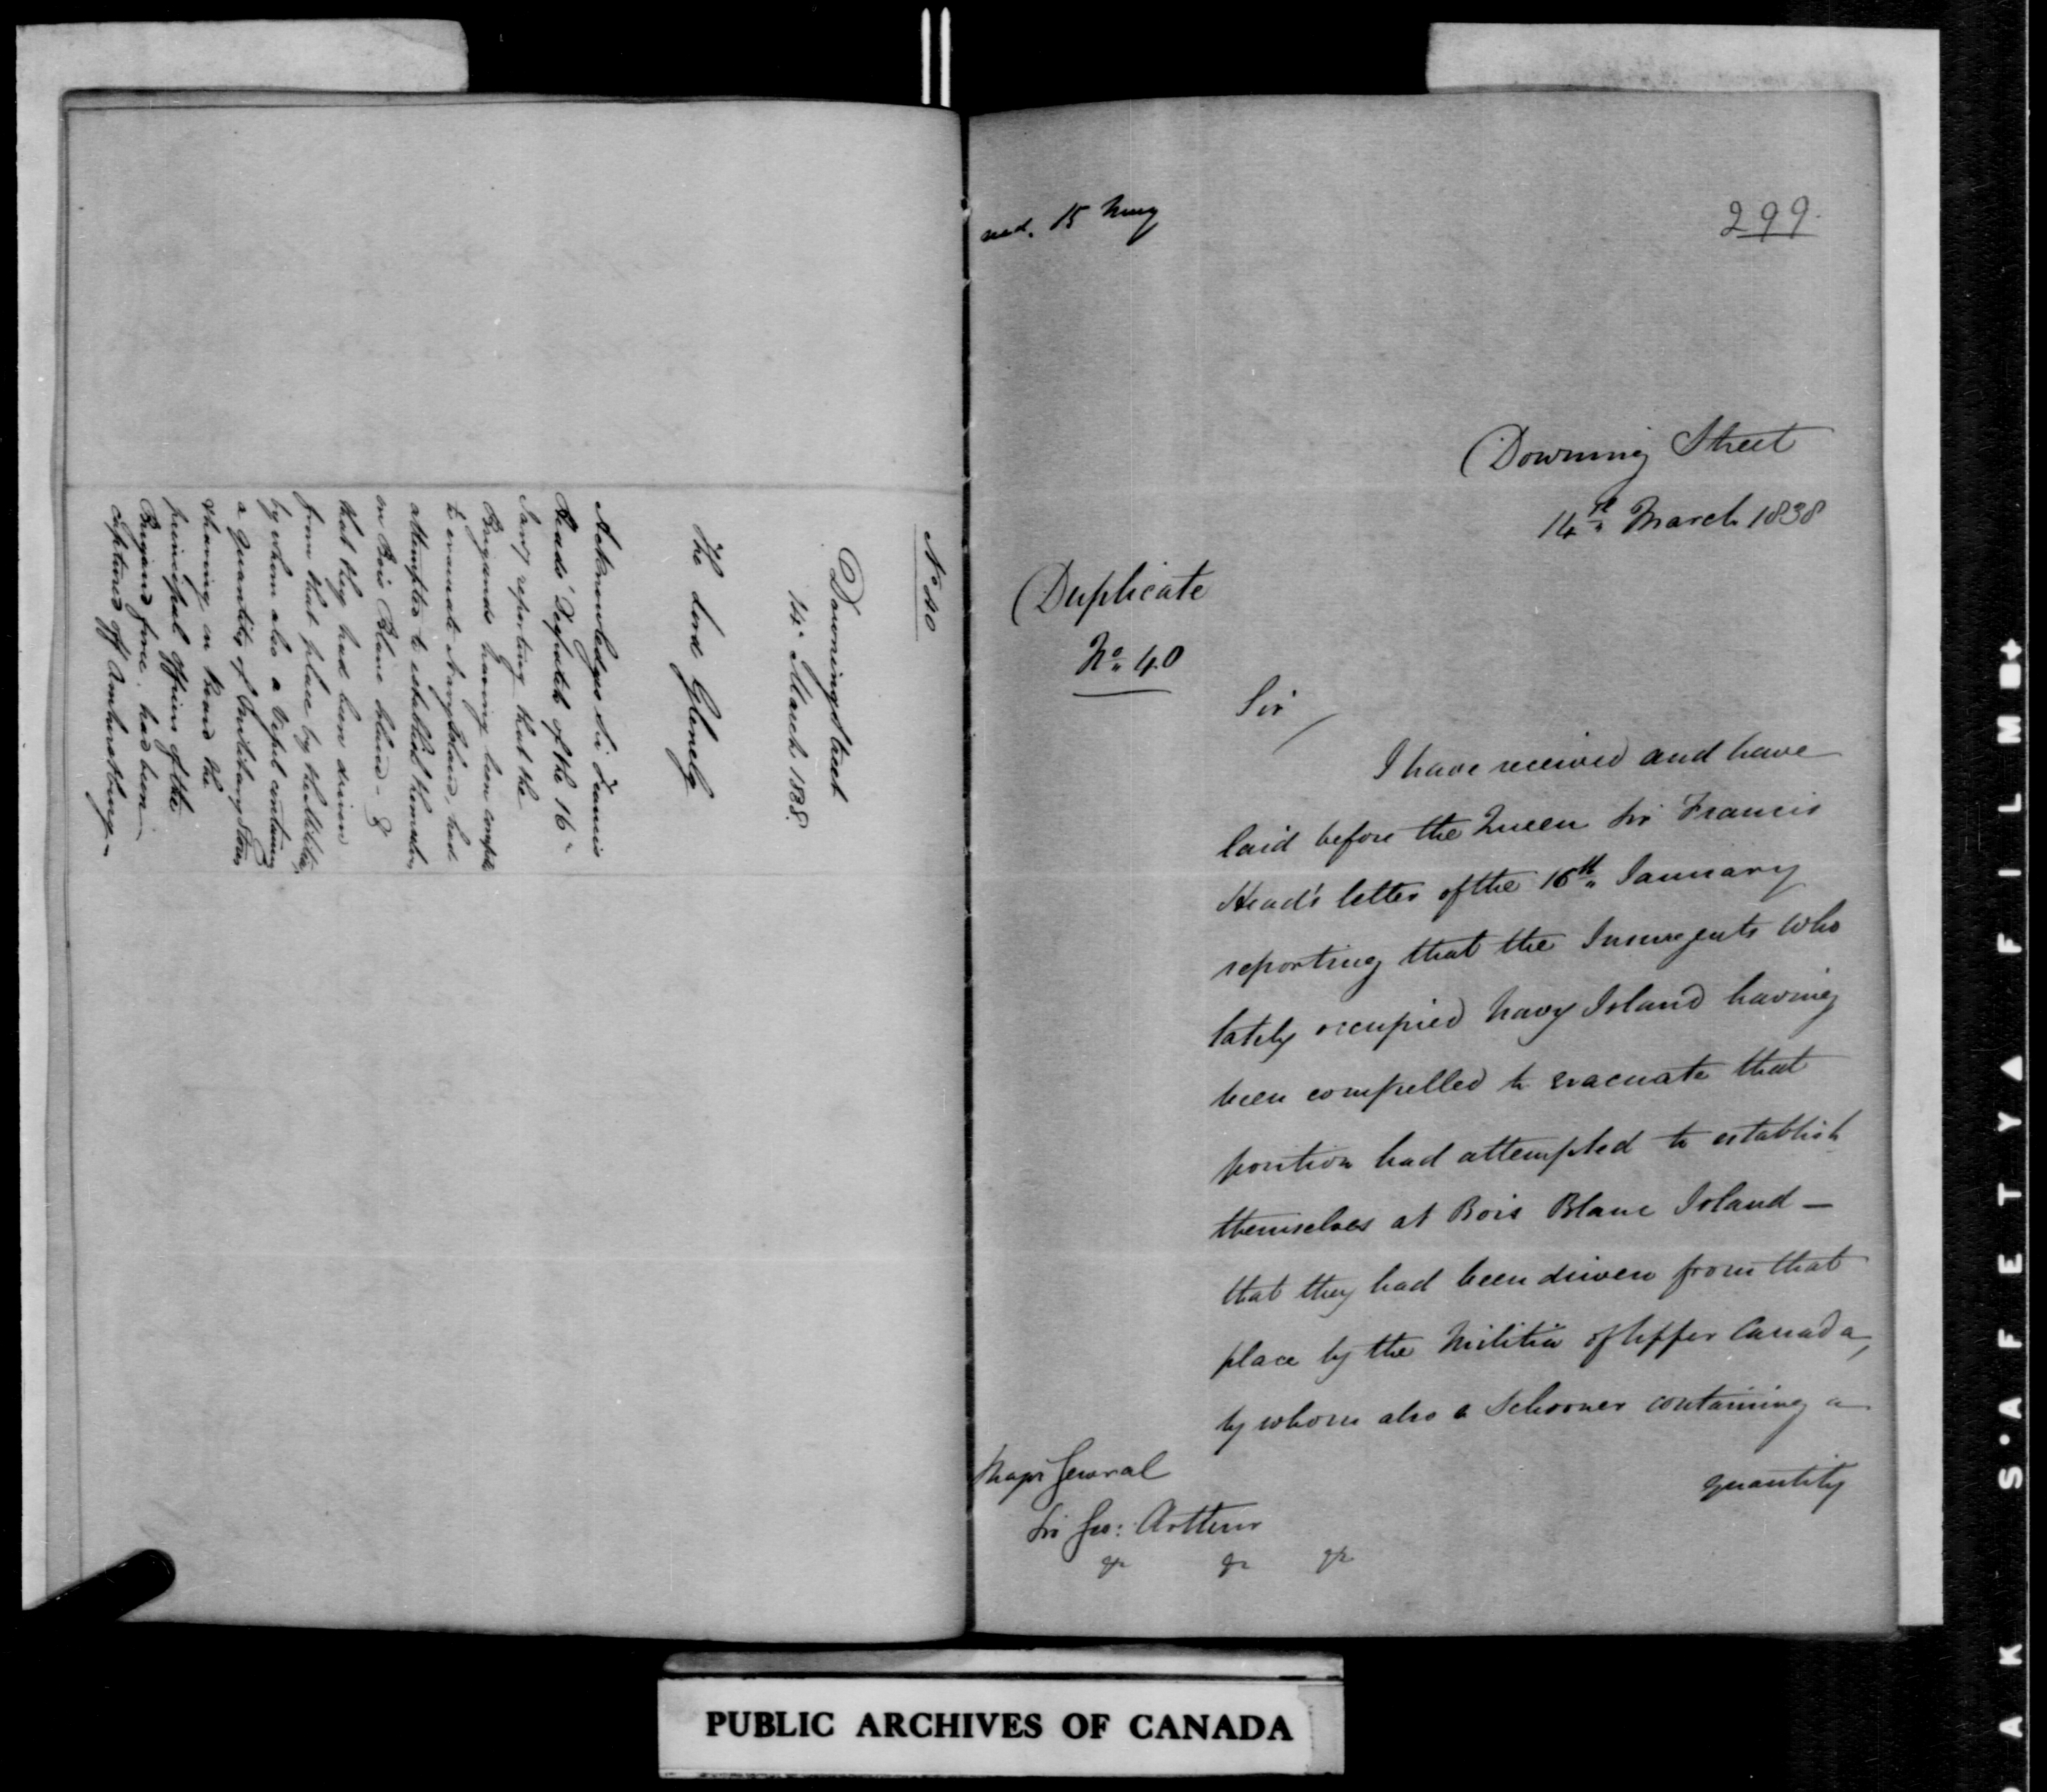 No 40
Downing Street
14th March 1838.
The Lord Glenelg
Acknowledges Sir Francis
Heads' Despatch of the 16th
Jany reporting that the
Brigands having been compelled
to evacuate Navy Island, had
attempted to establish themselves
on Bois Blanc Island - &
that they had been driven
from that place by the Militia,
by whom also a Vessel containing
a quantity of Military Stores
& having on board the
principal officers of the
Brigand force, had been
captured off Amherstburg -
15 May
299.
Downing Street
14th March 1838
Duplicate
No 40
Sir
I have received and have
laid before the Queen Sir Francis
Head's letter of the 16th January
reporting that the Insurgents who
lately occupied Navy Island having
been compelled to evacuate that
position had attempted to establish
themselves at Bois Blanc Island -
that they had been driven from that
place by the Militia of Upper Canada,
by whom also a Schooner containing a
quantity
Major General
Sir Geo: Arthur
&c &c &c
PUBLIC ARCHIVES OF CANADA
AK S•AFETY▲FILM